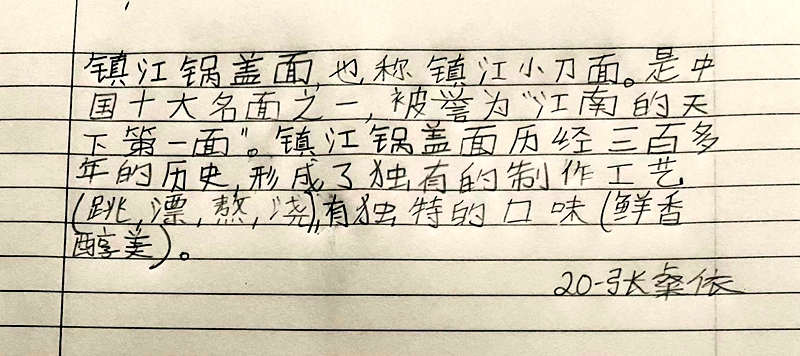 镇江锅盖面,也称镇江小刀面。是中
国十大名面之一,被誉为"江南的天
下第一面"。镇江锅盖面历经三百多
年的历史,形成了独有的制作工艺
(跳,漂,熬,浇),有独特的口味(鲜香
醇美)。
20-张桑依